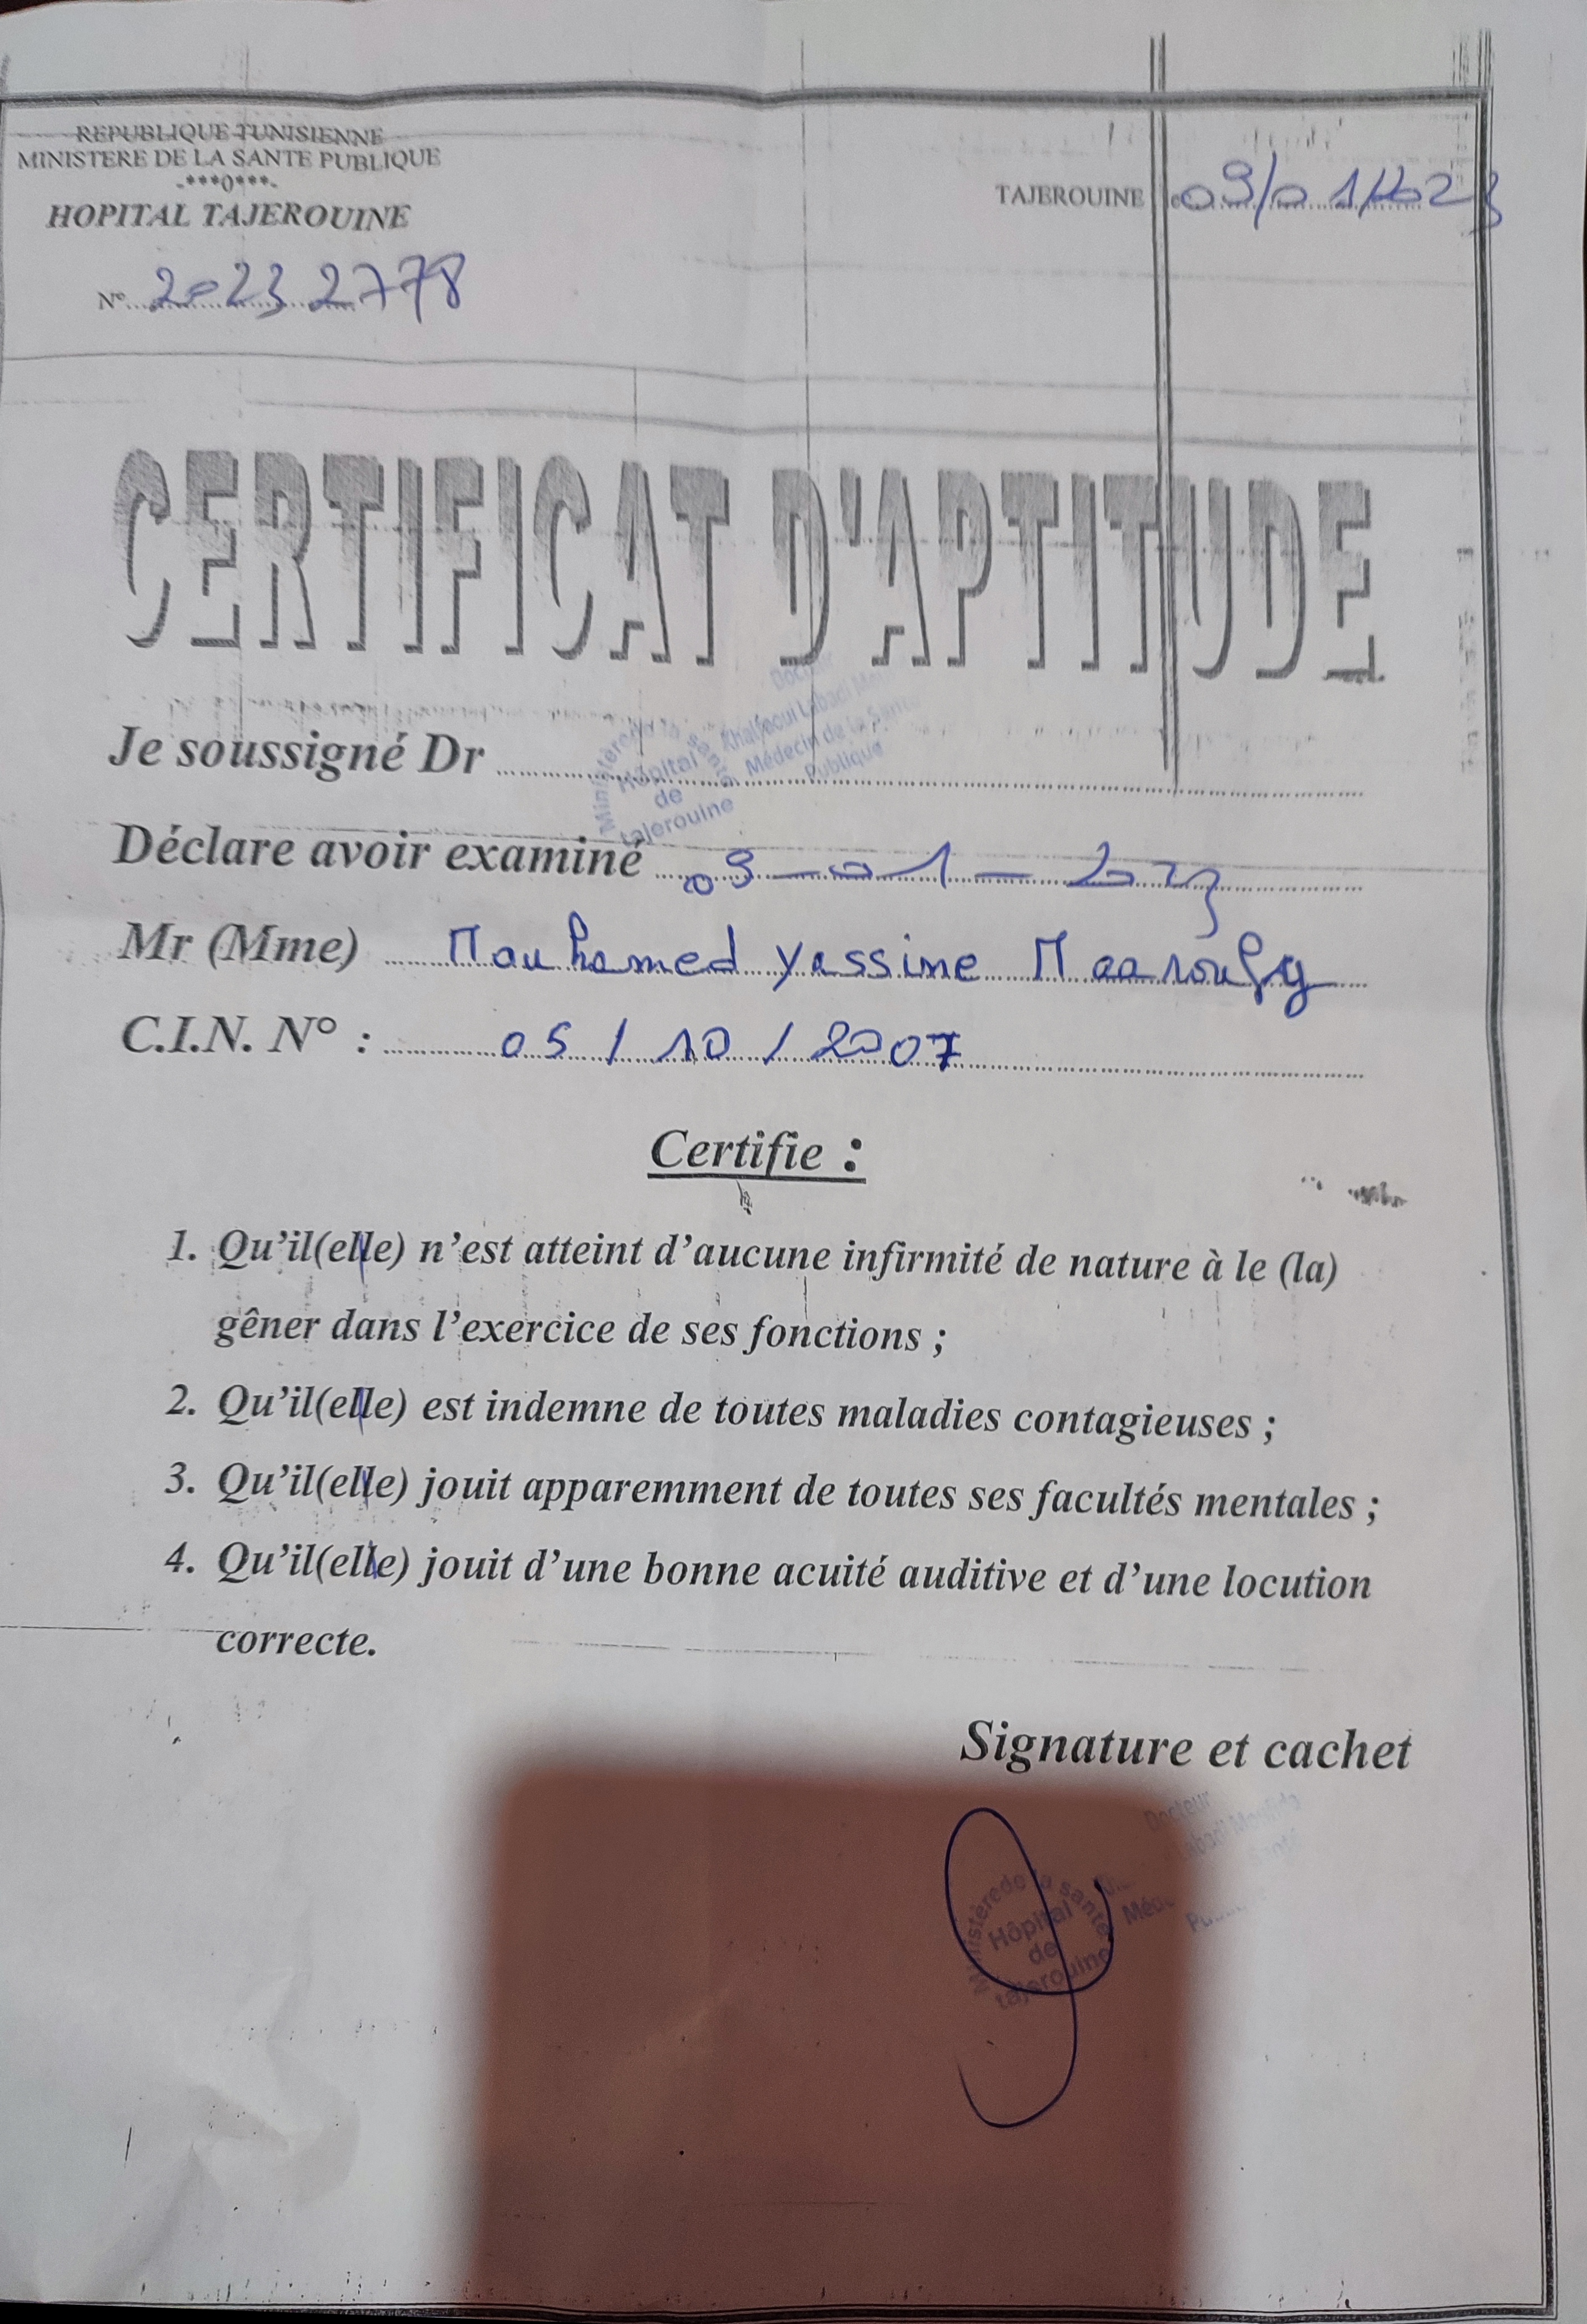 REPUBLIQUE TUNISIENNE
MINISTERE DE LA SANTE PUBLIQUE
-***0***-
HOPITAL TAJEROUINE
N° 2023 2778
TAJEROUINE le 09/01/2023
CERTIFICAT D'APTITUDE
Je soussigné Dr
Docteur
Khalfaoui Labadi
Médecin de la Santé
Publique
Ministère de la santé
Hôpital
de
tajerouine
Déclare avoir examiné 09-01-2023
Mr (Mme) Mouhamed yassine Maaroufy
C.I.N. N° : 05/10/2007
Certifie :
1. Qu'il(elle) n'est atteint d'aucune infirmité de nature à le (la)
gêner dans l'exercice de ses fonctions ;
2. Qu'il(elle) est indemne de toutes maladies contagieuses ;
3. Qu'il(elle) jouit apparemment de toutes ses facultés mentales ;
4. Qu'il(elle) jouit d'une bonne acuité auditive et d'une locution
correcte.
Signature et cachet
Docteur
Labadi
Ministère de la santé
Hôpital
de
tajerouine